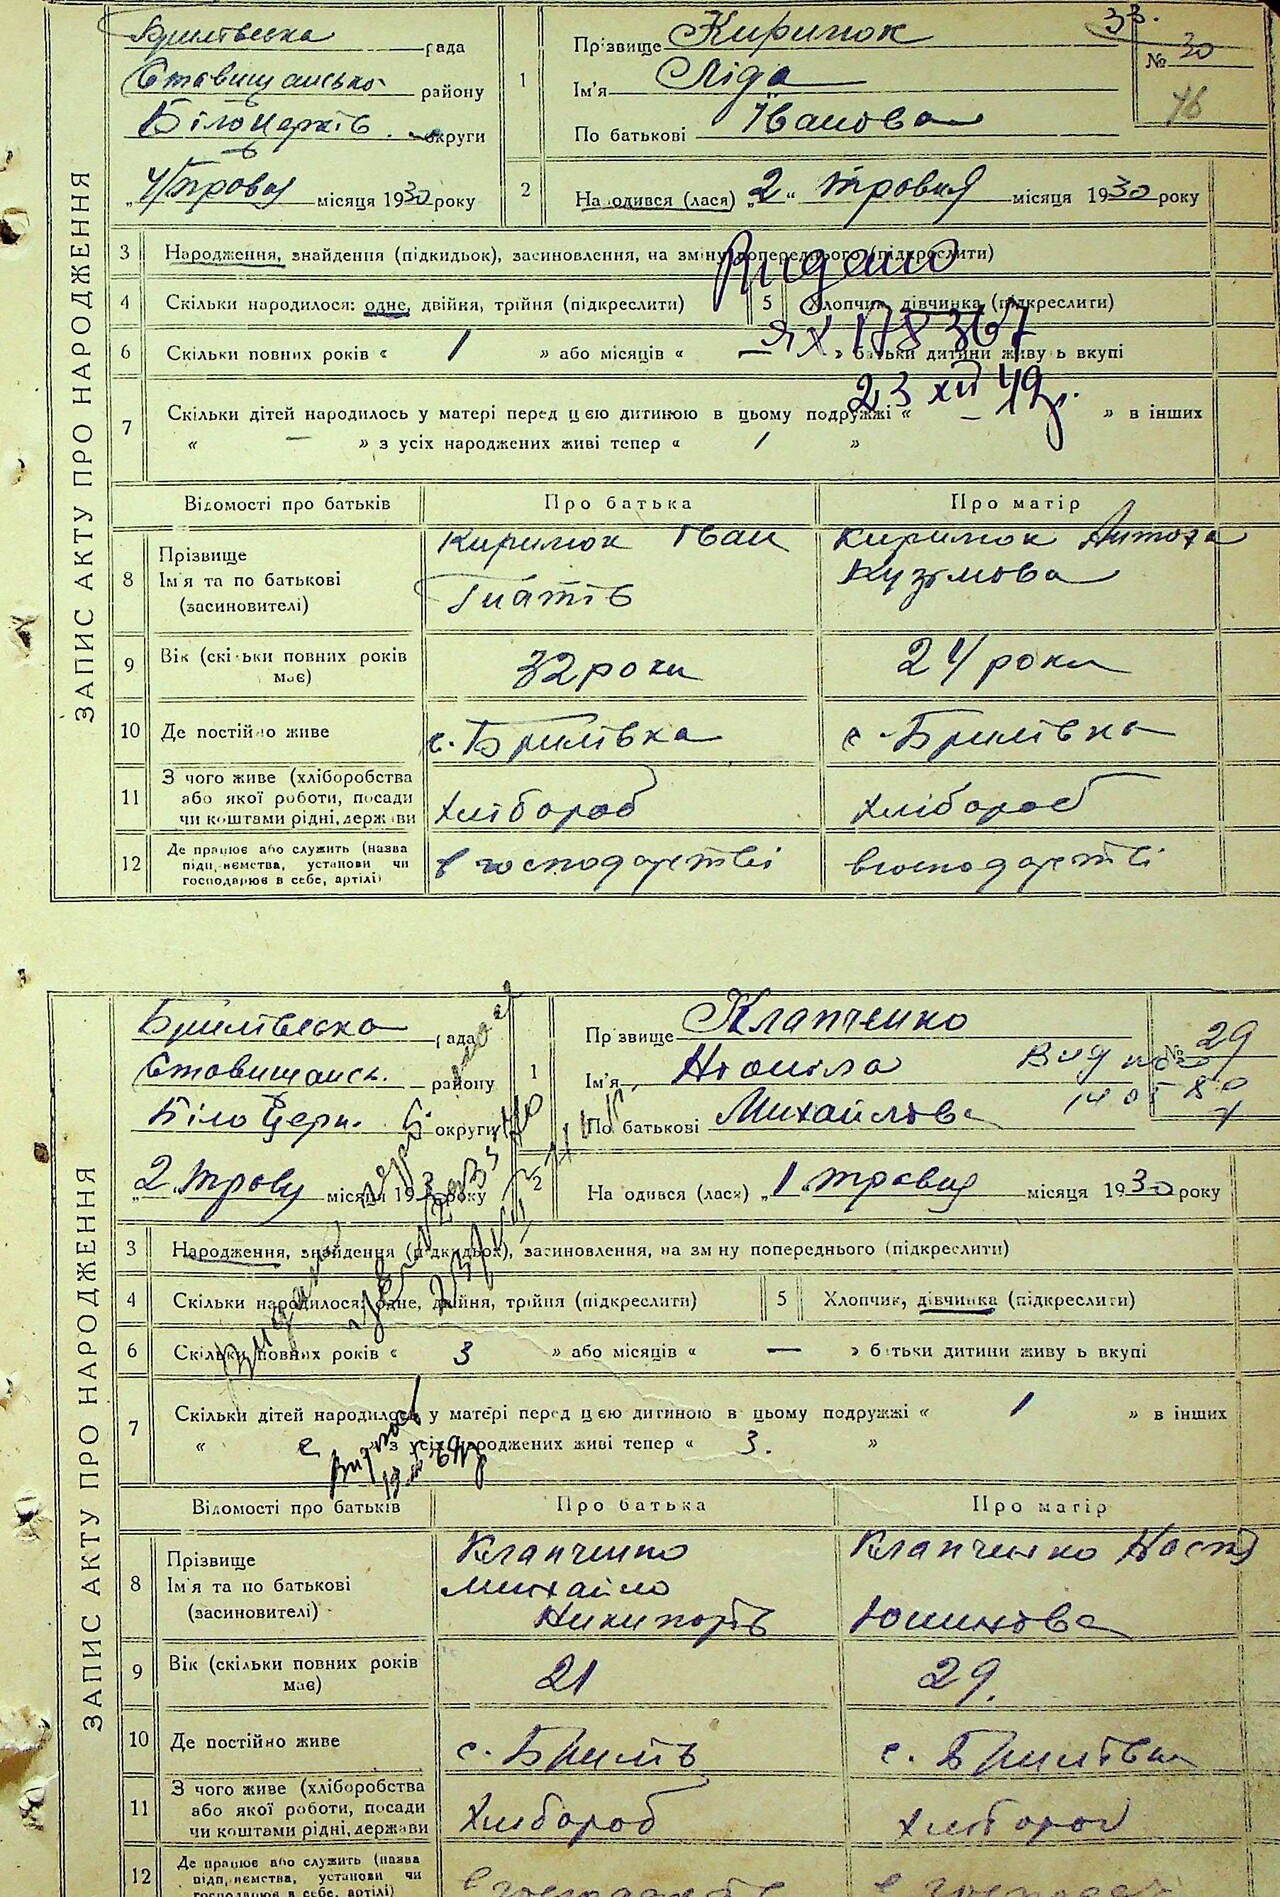 ЗАПИС АКТУ ПРО НАРОДЖЕННЯ
рада
району
Білоцерків. округи
"4" травня місяця 1930 року
1
Прізвище Киринюк
Ім'я Ліда
По батькові Іванова
33.
№ 30
46
2
На одився (лася) "2" травня місяця 1930 року
3 Народження, знайдення (підкидьок), засиновлення, на зміну попереднього (підкреслити)
Видано
4 Скільки народилося: одне, двійня, трійня (підкреслити)
5 Хлопчик, дівчинка (підкреслити)
ЯХ 178367
6 Скільки повних років « 1 » або місяців « — » батьки дитини живу ь вкупі
23 XII 49р.
7 Скільки дітей народилось у матері перед цією дитиною в цьому подружжі « — » в інших
« — » з усіх народжених живі тепер « 1 »
Відомості про батьків Про батька Про матір
8 Прізвище
Ім'я та по батькові
(засиновителі)
Киринюк Іван
Гнатів
Киринюк
Кузьмова
9 Вік (скільки повних років має)
32 роки
24 роки
10 Де постійно живе
с. Брилівка
с. Брилівка
11 З чого живе (хліборобства
або якої роботи, посади
чи коштами рідні, держави
Хлібороб
Хлібороб
12 Де працює або служить (назва
підприємства, установи чи
господарює в себе, артілі)
в господарстві
в господарстві
ЗАПИС АКТУ ПРО НАРОДЖЕННЯ
рада
району
Біло Церк. округи
"2" траву місяця 193 року
1
Прізвище Клапченко
Ім'я
По батькові Михайлова
№ 29
2
На одився (лася) "1" травня місяця 1930 року
3 Народження, знайдення (підкидьок), засиновлення, на зміну попереднього (підкреслити)
4 Скільки народилося: одне, двійня, трійня (підкреслити)
5 Хлопчик, дівчинка (підкреслити)
Видано
6 Скільки повних років « 3 » або місяців « — » батьки дитини живу ь вкупі
7 Скільки дітей народилось у матері перед цією дитиною в цьому подружжі « 1 » в інших
« » з усіх народжених живі тепер « 3. »
Відомості про батьків Про батька Про матір
8 Прізвище
Ім'я та по батькові
(засиновителі)
Клапченко
Михайло
Никипорів
Клапченко Настя
9 Вік (скільки повних років має)
21
29.
10 Де постійно живе
с. Брилів
с. Брилівка
11 З чого живе (хліборобства
або якої роботи, посади
чи коштами рідні, держави
Хлібороб
Хлібороб
12 Де працює або служить (назва
підприємства, установи чи
господарює в себе, артілі)